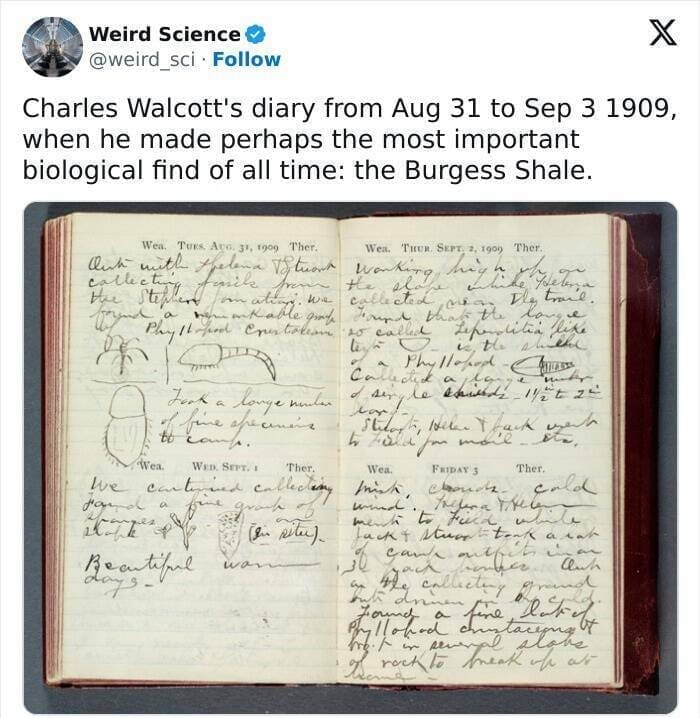 Weird Science
@weird_sci · Follow
X
Charles Walcott's diary from Aug 31 to Sep 3 1909,
when he made perhaps the most important
biological find of all time: the Burgess Shale.
Wea. TUES. AUG. 31, 1909 Ther.
Out with Helena & Stuart
collecting fossils from
the Stephen formation. We
found a remarkable group
of Phyllopod Crustaceans
Took a large number
of fine specimens
to camp.
Wea. WED. SEPT. 1 Ther.
We continued collecting
Found a fine group of
sponges on
slope (in situ).
Beautiful warm
days -
Wea. THUR. SEPT. 2, 1909 Ther.
Working high up on
the slope while Helena
collected near the trail.
Found that the large
so called Leperditia like
test is the shield
of a Phyllopod
Collected a large number
of single shields 1½ to 2
long.
Stuart, Helen & Jack went
to Field for mail - etc.
Wea. FRIDAY 3 Ther.
clouds - cold
wind. Helena & Helen
went to Field while
Jack & Stuart took a lot
of camp outfit in on
3 pack horses Out
on the collecting ground
but driven in by cold
Found a fine lot of
Phyllopod crustaceans &
bro't in several slabs
of rock to break up at